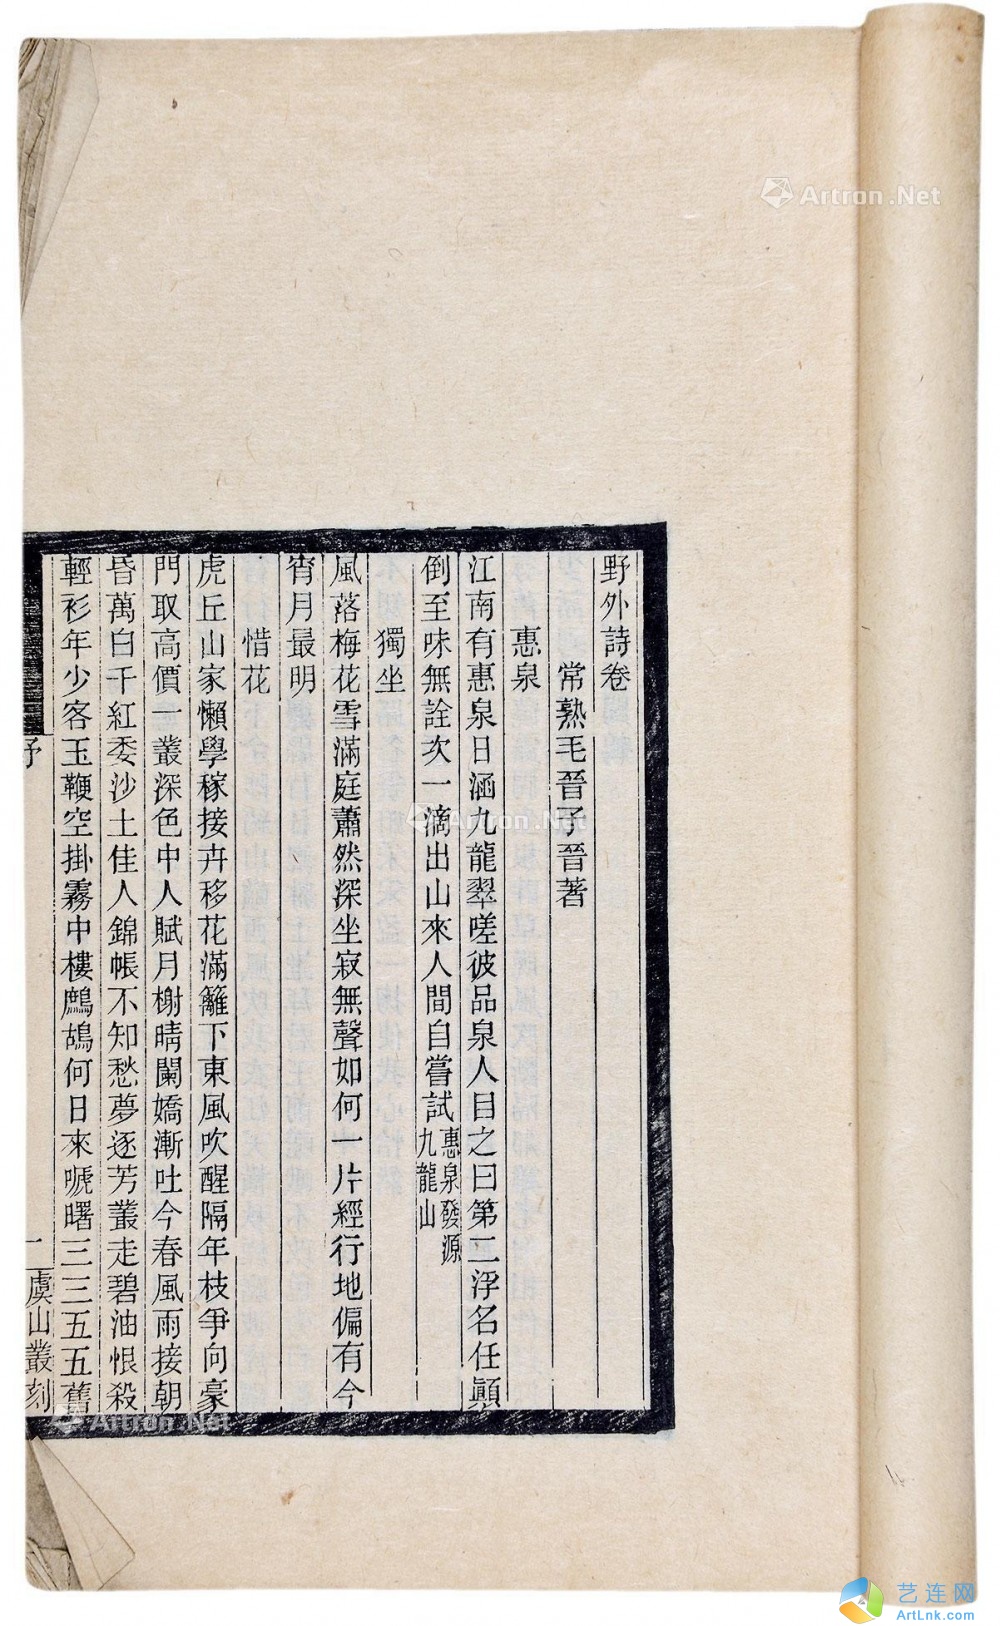 野外詩卷
常熟毛晉子晉著
惠泉
江南有惠泉日涵九龍翠嗟彼品泉人目之曰第二浮名任顛
倒至味無詮次一滴出山來人間自嘗試惠泉發源九龍山
獨坐
風落梅花雪滿庭蕭然深坐寂無聲如何一片經行地偏有今
宵月最明
惜花
虎丘山家懶學稼接卉移花滿籬下東風吹醒隔年枝爭向豪
門取高價一叢深色中人賦月榭晴闌嬌漸吐今春風雨接朝
昏萬白千紅委沙土佳人錦帳不知愁夢逐芳叢走碧油恨殺
輕衫年少客玉鞭空掛霧中樓鷓鴣何日來嗁曙三三五五舊
一
虞山叢刻
Artron.Net
Artron.Net
Artron.Net
艺连网
ArtLnk.com